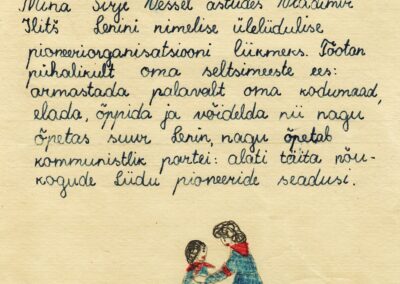 Mina Sirje Vessel astudes Vladimir
Iljitš Lenini nimelise üleliidulise
pioneeriorganisatsiooni liikmeks. Tõotan
pühalikult oma seltsimeeste ees:
armastada palavalt oma kodumaad,
elada, õppida ja võidelda nii nagu
õpetas suur Lenin, nagu õpetab
kommunistlik partei: alati täita nõu-
kogude Liidu pioneeride seadusi.